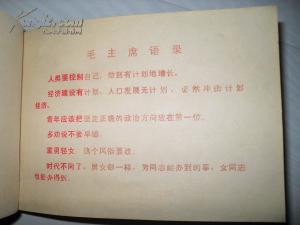 毛主席语录
人类要控制自己，做到有计划地增长。
经济建设有计划，人口发展无计划，必然冲击计划
经济。
青年应该把坚定正确的政治方向放在第一位。
多劝说不要早婚。
重男轻女，这个风俗要改。
时代不同了，男女都一样，男同志能办到的事，女同志
也能办得到。